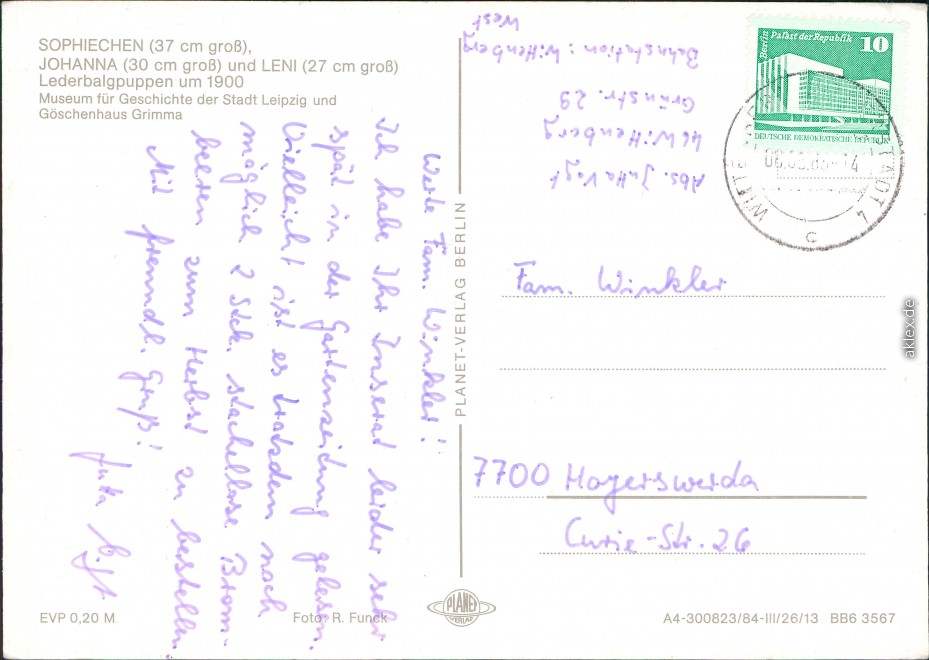 SOPHIECHEN (37 cm groß),
JOHANNA (30 cm groß) und LENI (27 cm groß)
Lederbalgpuppen um 1900
Museum für Geschichte der Stadt Leipzig und
Göschenhaus Grimma
Werte Fam. Winkler!
Ich habe Ihr Inserat leider sehr
spät in der Gartenzeitung gelesen.
Vielleicht ist es trotzdem noch
möglich 2 Stck. stachellose Brom-
beeren zum Herbst zu bestellen
Mit freundl. Gruß!
Jutta Vogt
EVP 0,20 M
Foto: R. Funck
PLANET-VERLAG BERLIN
PLANET
VERLAG
Abs. Jutta Vogt
46 Wittenberg
Grünstr. 29
Bahnstation: Wittenberg
West
Berlin Palast der Republik 10
DEUTSCHE DEMOKRATISCHE REPUBLIK
STADT 4
c
Fam. Winkler
7700 Hoyerswerda
Curie-Str. 26
A4-300823/84-III/26/13 BB6 3567
aklex.de